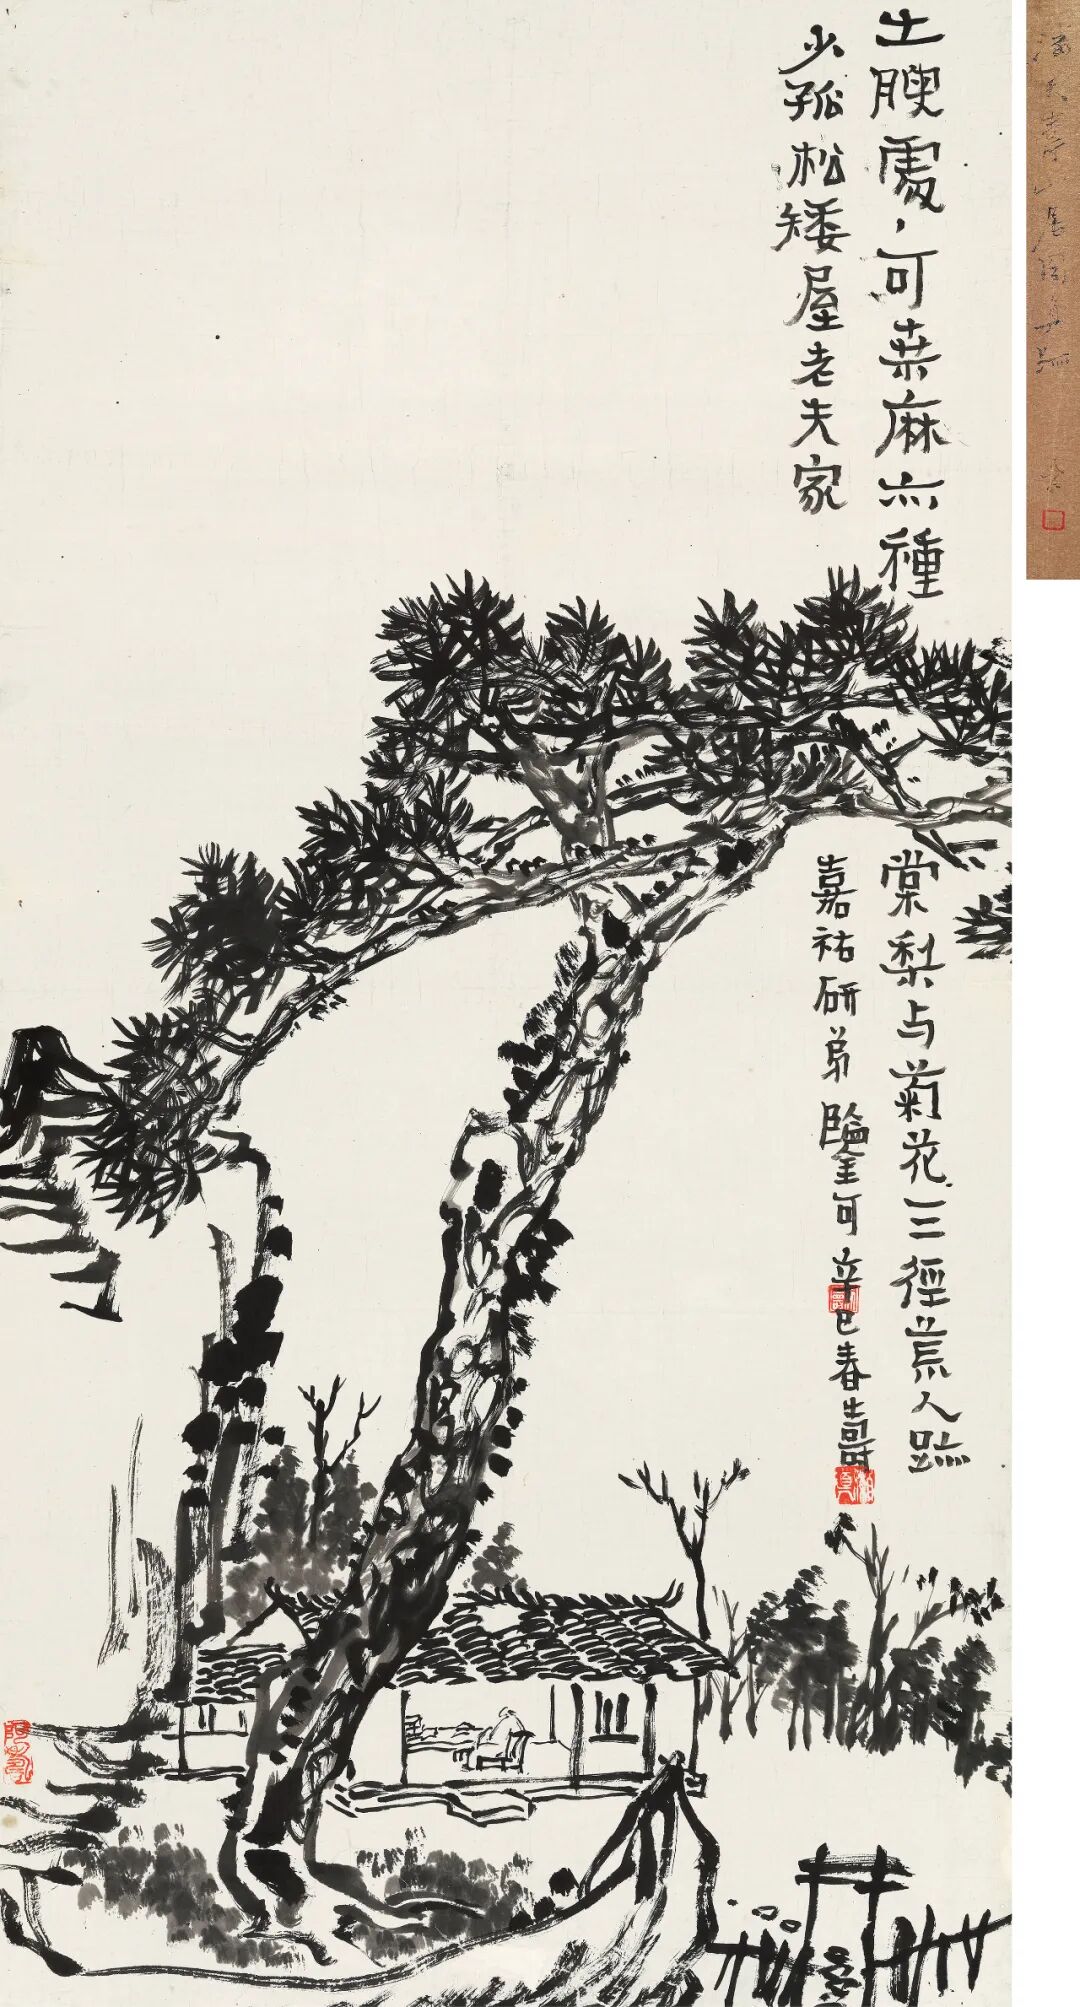 土腴處、可桑麻亦種
棠梨与菊花三徑荒人跡
少孤松矮屋老夫家
嘉祐研弟鑒可 辛巳春壽
阿壽